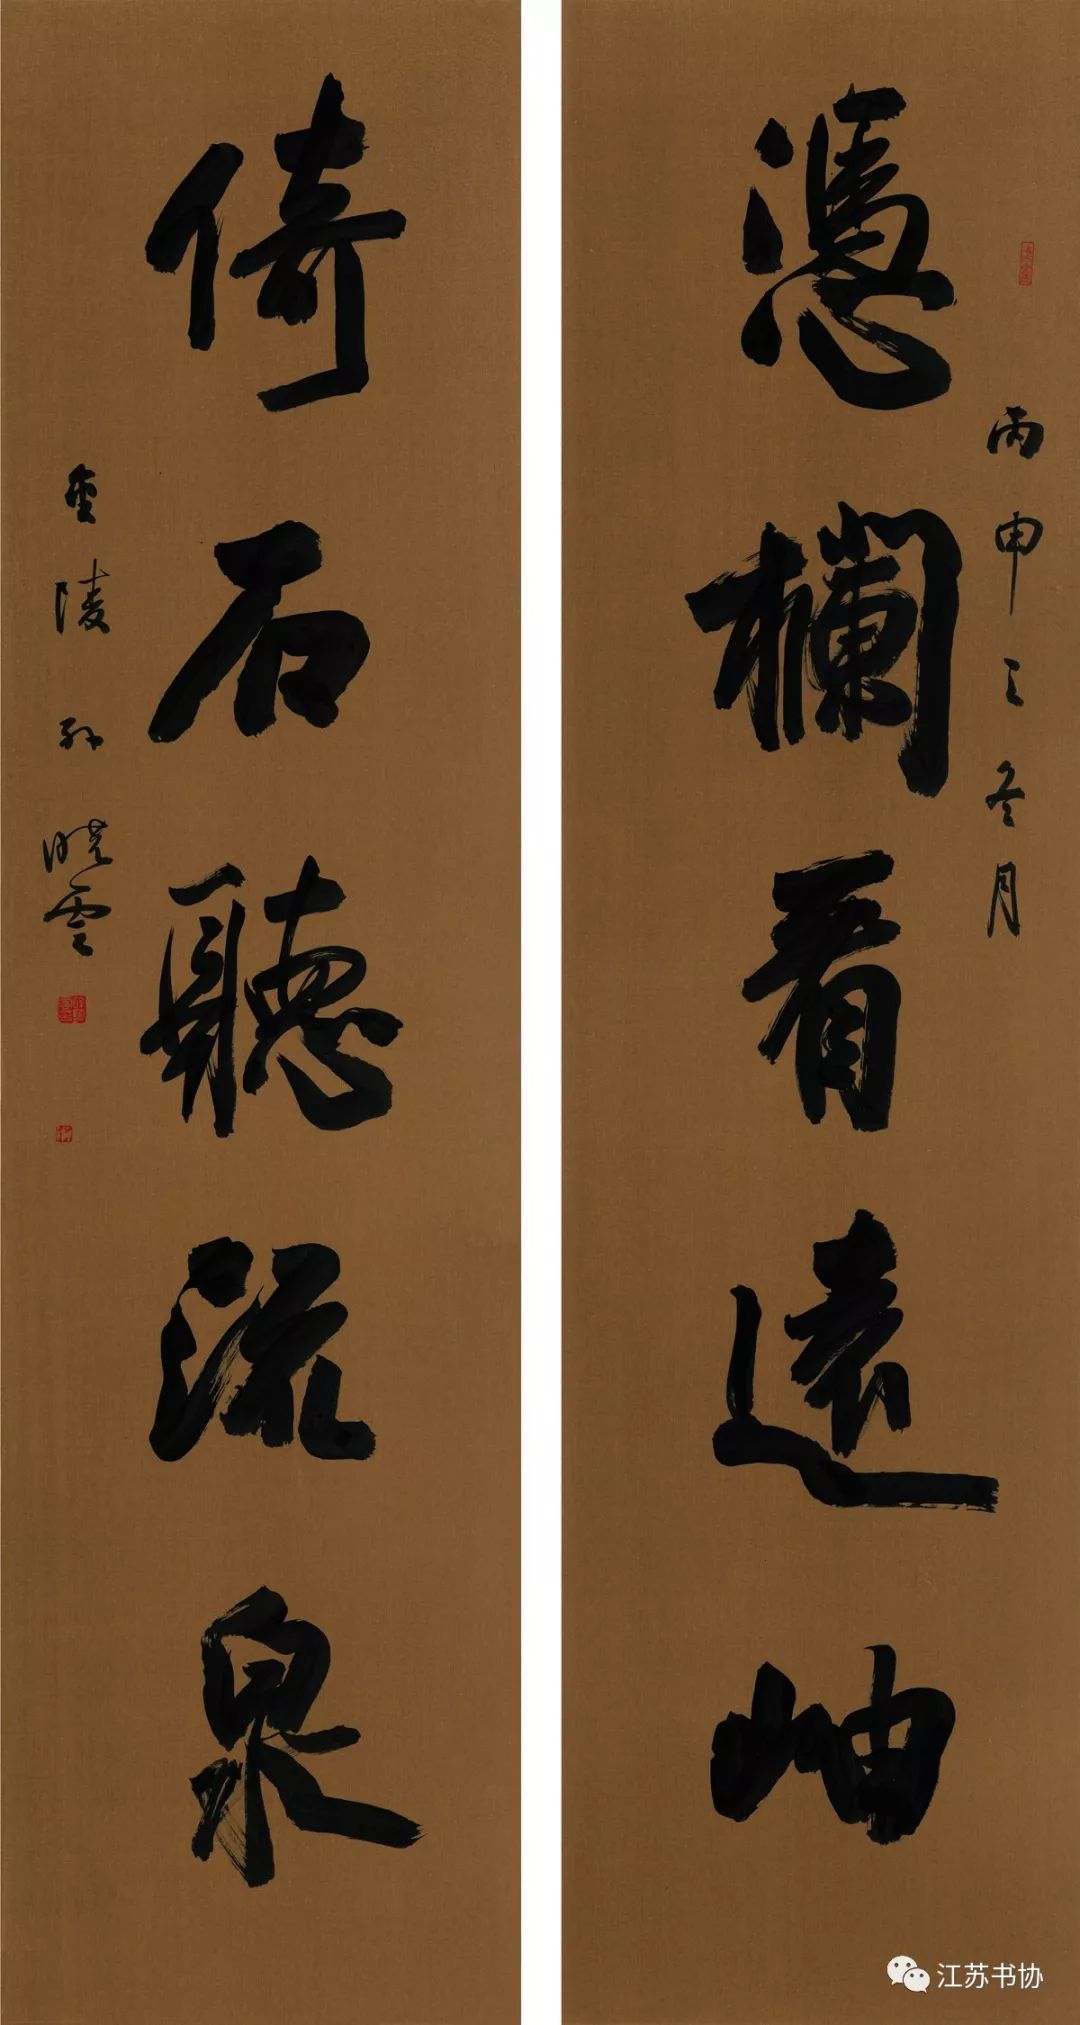 憑欄看遠岫
丙申之冬月
倚石聽流泉
金陵孫曉雲
江苏书协